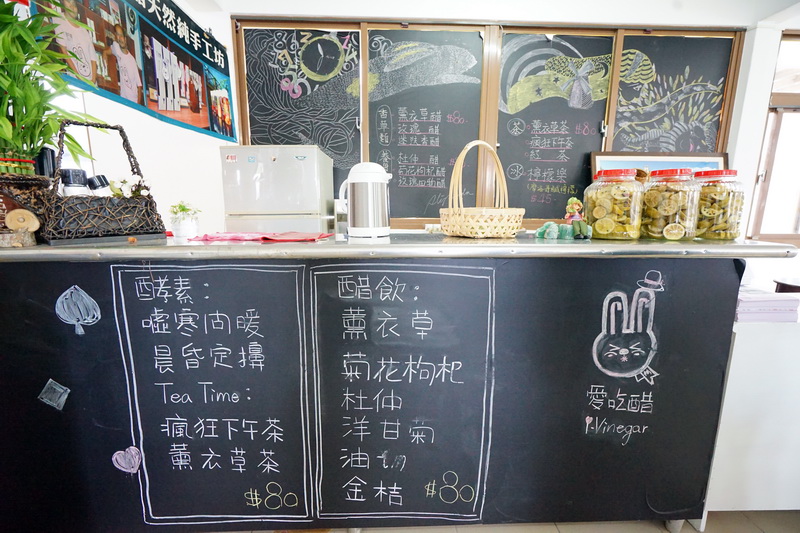 天然純手工坊
薰衣草醋
玫瑰 醋
迷迭香醋
$80
杜仲 醋
菊花枸杞醋
玫瑰四物醋
茶
薰衣草茶
瘋狂下午茶
$80
冰
檸檬樂
酵素:
噓寒問暖
晨昏定擤
Tea Time:
瘋狂下午茶
薰衣草茶
$80
醋飲:
薰衣草
菊花枸杞
杜仲
洋甘菊
油切
金桔
$80
愛吃醋
i-Vinegar